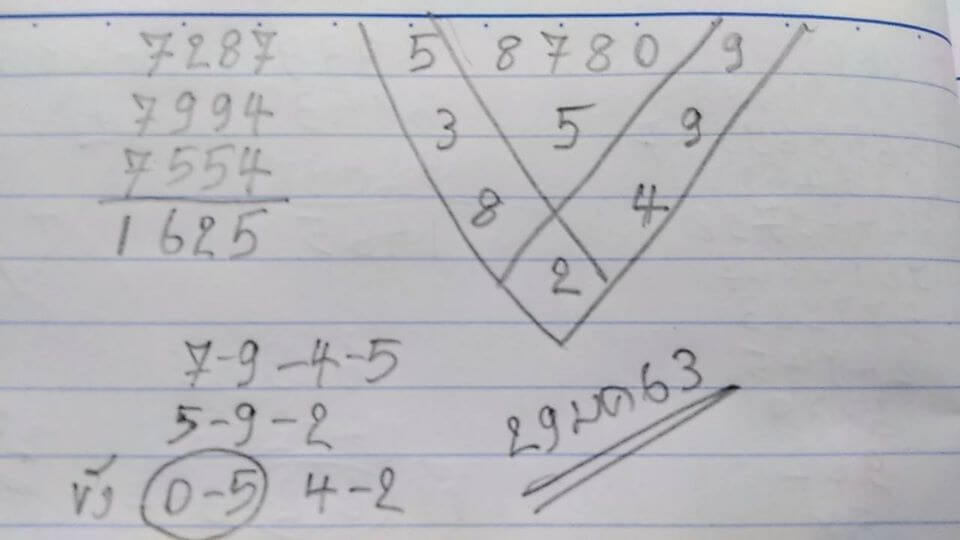 7287
7994
7554
1625
5 8780 9
3 5 9
8 4
2
7-9-4-5
5-9-2
0-5 4-2
29 มค 63